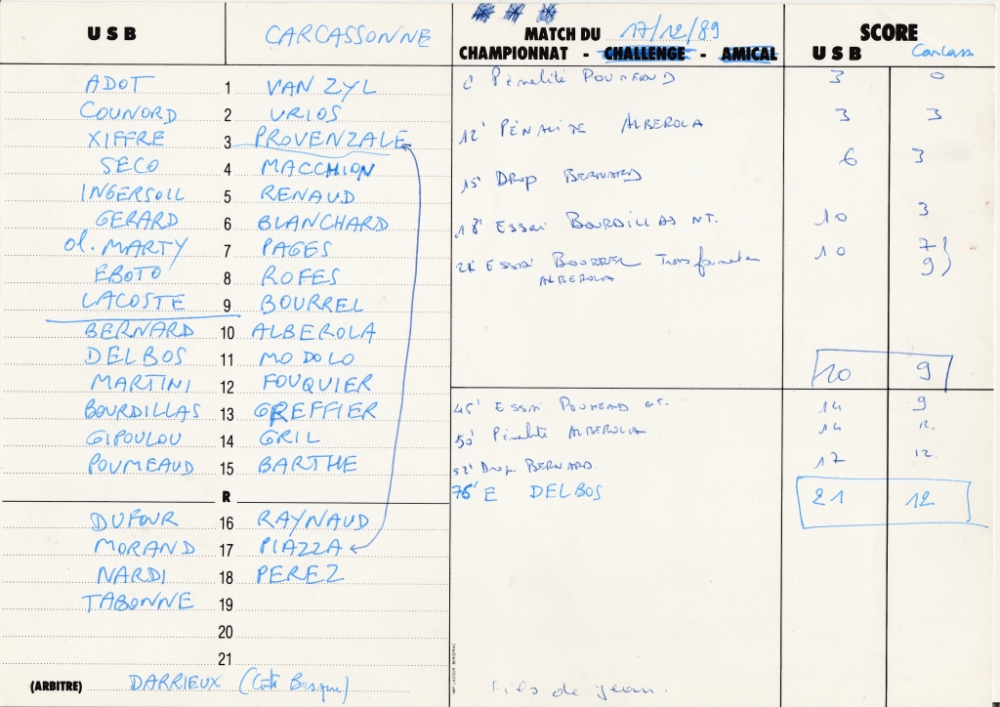 USB CARCASSONNE
MATCH DU 17/12/89
CHAMPIONNAT - CHALLENGE - AMICAL
SCORE
USB Carcass
ADOT 1 VAN ZYL
COUNORD 2 URIOS
XIFFRE 3 PROVENZALE
SECO 4 MACCHION
INGERSOLL 5 RENAUD
GERARD 6 BLANCHARD
Ol. MARTY 7 PAGES
EBOTO 8 ROFES
LACOSTE 9 BOURREL
BERNARD 10 ALBEROLA
DELBOS 11 MODOLO
MARTINI 12 FOUQUIER
BOURDILLAS 13 GREFFIER
GIPOULOU 14 GRIL
POUMEAUD 15 BARTHE
R
DUFOUR 16 RAYNAUD
MORAND 17 PIAZZA
NARDI 18 PEREZ
TABONNE 19
20
21
(ARBITRE) DARRIEUX (Côte Basque)
Pénalité POUMEAUD 3 0
12' PÉNALITE ALBEROLA 3 3
15' Drop BERNARD 6 3
18' ESSAI BOURDILLAS NT. 10 3
ESSAI BOURREL Transformation 10 7
ALBEROLA 9
10 9
ESSAI POUMEAUD NT. 14 9
50' Pénalité ALBEROLA 14 12
52' Drop BERNARD 17 12
76' E DELBOS 21 12
de jean.